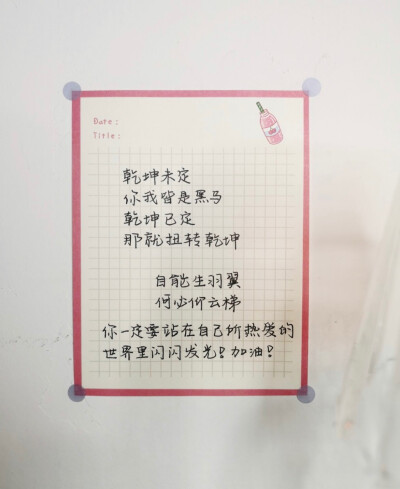 Date:
Title:
乾坤未定
你我皆是黑马
乾坤已定
那就扭转乾坤
自能生羽翼
何必仰云梯
你一定要站在自己所热爱的
世界里闪闪发光!加油!